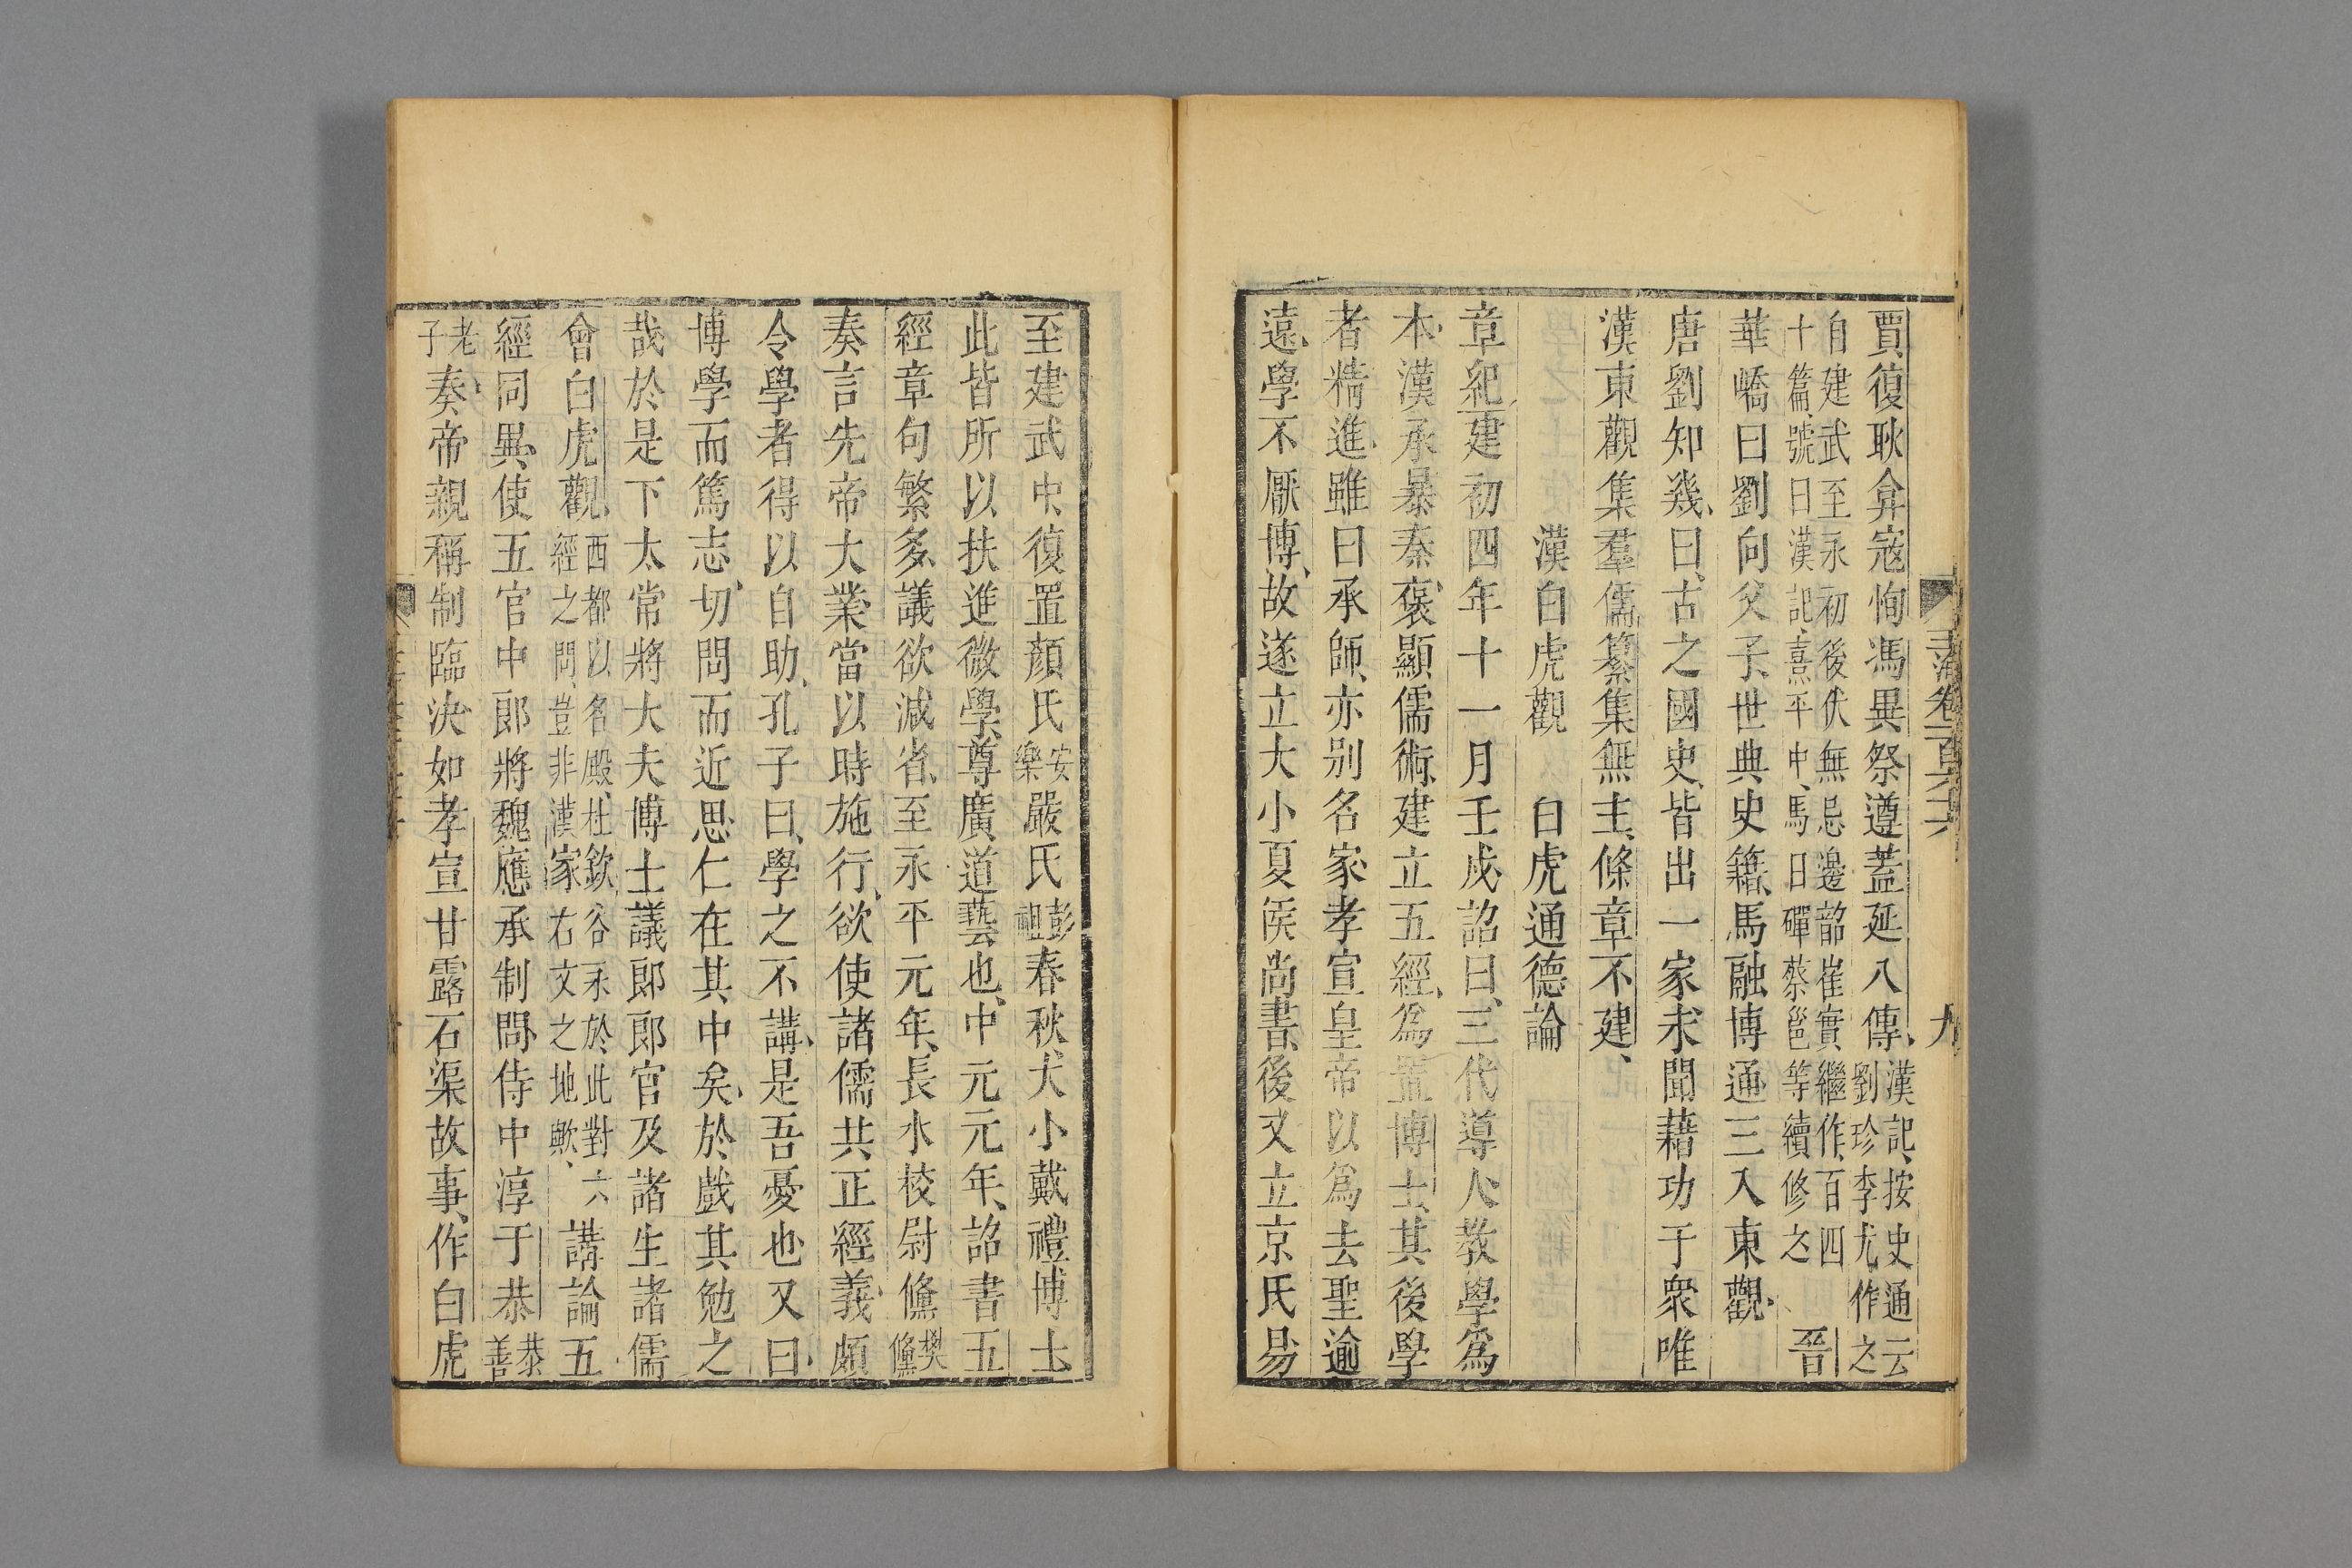 玉海卷一百六十六 九
賈復耿弇寇恂馮異祭遵蓋延八傳、漢記、按史通云劉珍李尤作之
自建武至永初後伏無忌邊韶崔實繼作、百四十篇、號曰漢記、熹平中、馬日磾蔡邕等續修之 晉
華嶠曰劉向父子、世典史籍、馬融博通三入東觀、
唐劉知幾、曰、古之國史、皆出一家、未聞藉功于衆唯
漢東觀集羣儒纂集無主、條章不建、
漢白虎觀 白虎通德論
章紀建初四年十一月壬戌、詔曰、三代導人、教學爲
本、漢承暴秦、褒顯儒術、建立五經、爲置博士、其後學
者精進、雖曰承師、亦别名家、孝宣皇帝以爲去聖逾
遠、學不厭博、故遂立大小夏侯尚書、後又立京氏易
至建武中、復置顔氏安樂嚴氏彭祖春秋、大小戴禮博士、
此皆所以扶進微學、尊廣道藝也、中元元年、詔書五
經章句繁多、議欲減省、至永平元年、長水校尉儵樊儵
奏言先帝大業、當以時施行、欲使諸儒共正經義、頗
令學者得以自助、孔子曰、學之不講、是吾憂也、又曰、
博學而篤志、切問而近思、仁在其中矣、於戲其勉之
哉於是下太常將大夫博士議郎郎官及諸生諸儒
會白虎觀、西都以名殿、杜欽谷永於此對六經之問、豈非漢家右文之地歟、講論五
經同異、使五官中郎將魏應承制問、侍中淳于恭恭善老子
奏、帝親稱制臨決、如孝宣甘露石渠故事、作白虎